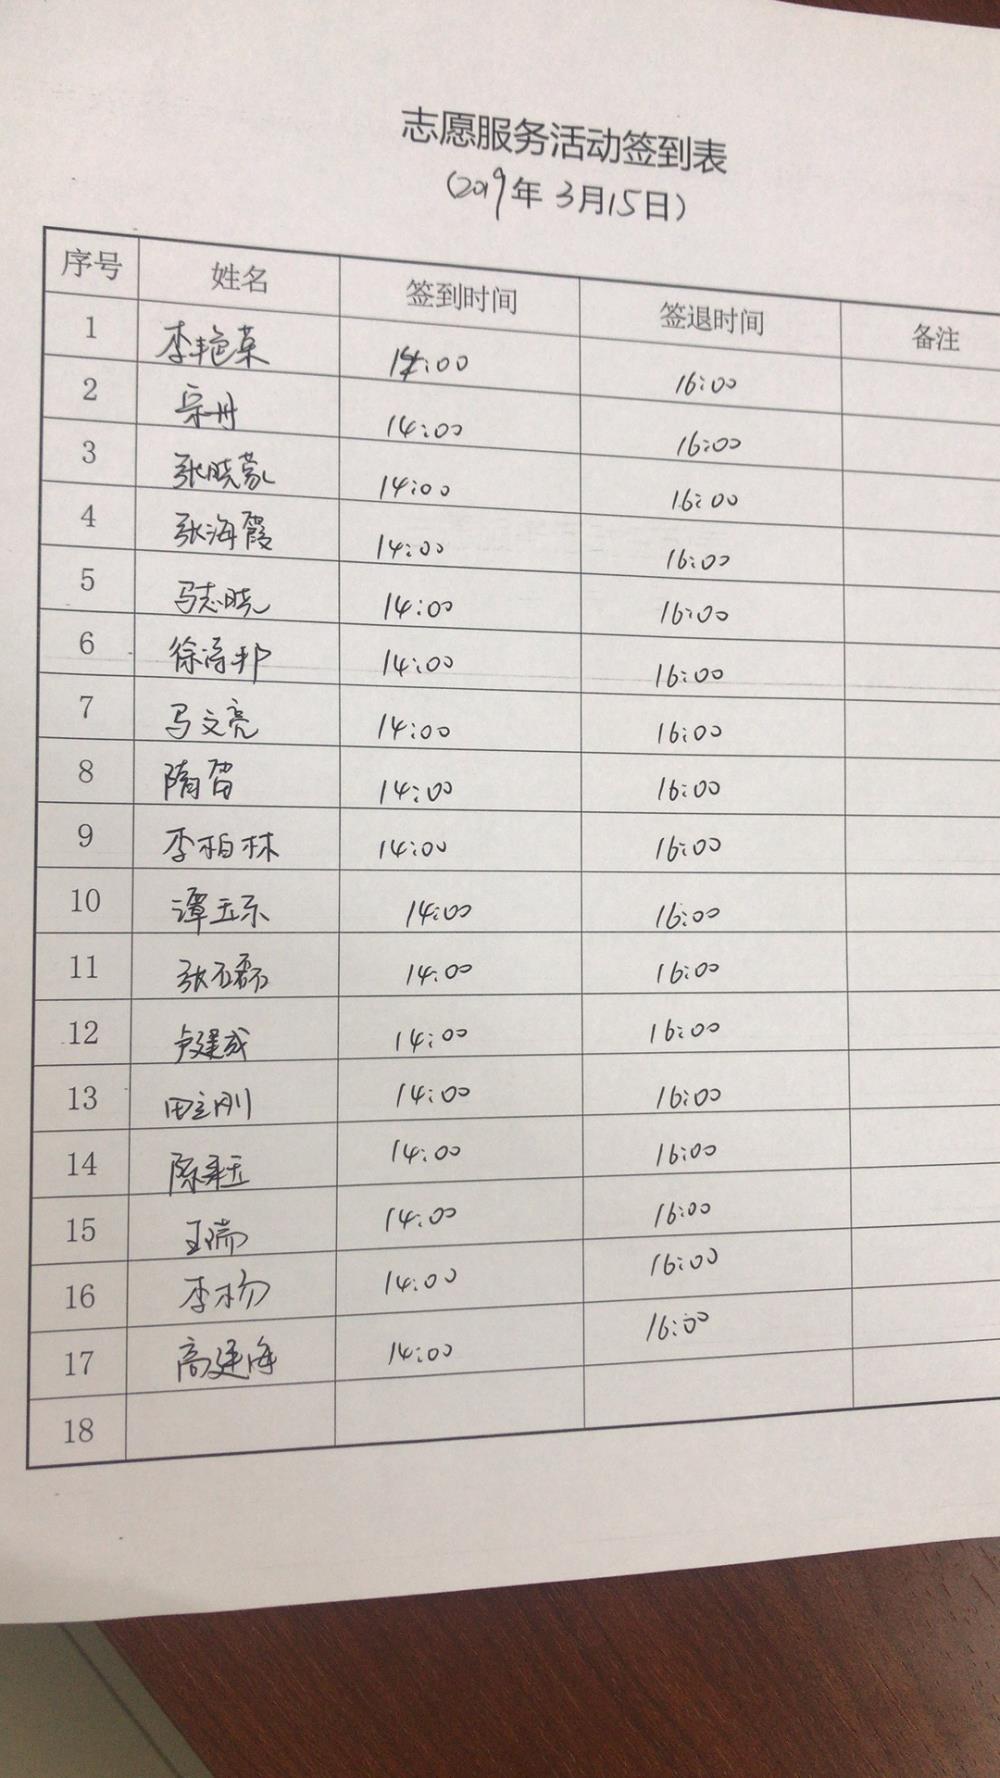 志愿服务活动签到表
(2019年3月15日)
序号 姓名 签到时间 签退时间 备注
1 李艳荣 14:00 16:00
2 宗丹 14:00 16:00
3 张晓蒙 14:00 16:00
4 张海霞 14:00 16:00
5 马志晓 14:00 16:00
6 14:00 16:00
7 马文亮 14:00 16:00
8 隋苗 14:00 16:00
9 李柏林 14:00 16:00
10 谭玉乐 14:00 16:00
11 张石磊 14:00 16:00
12 卢建成 14:00 16:00
13 田立刚 14:00 16:00
14 14:00 16:00
15 王瑞 14:00 16:00
16 李杨 14:00 16:00
17 高廷海 14:00 16:00
18